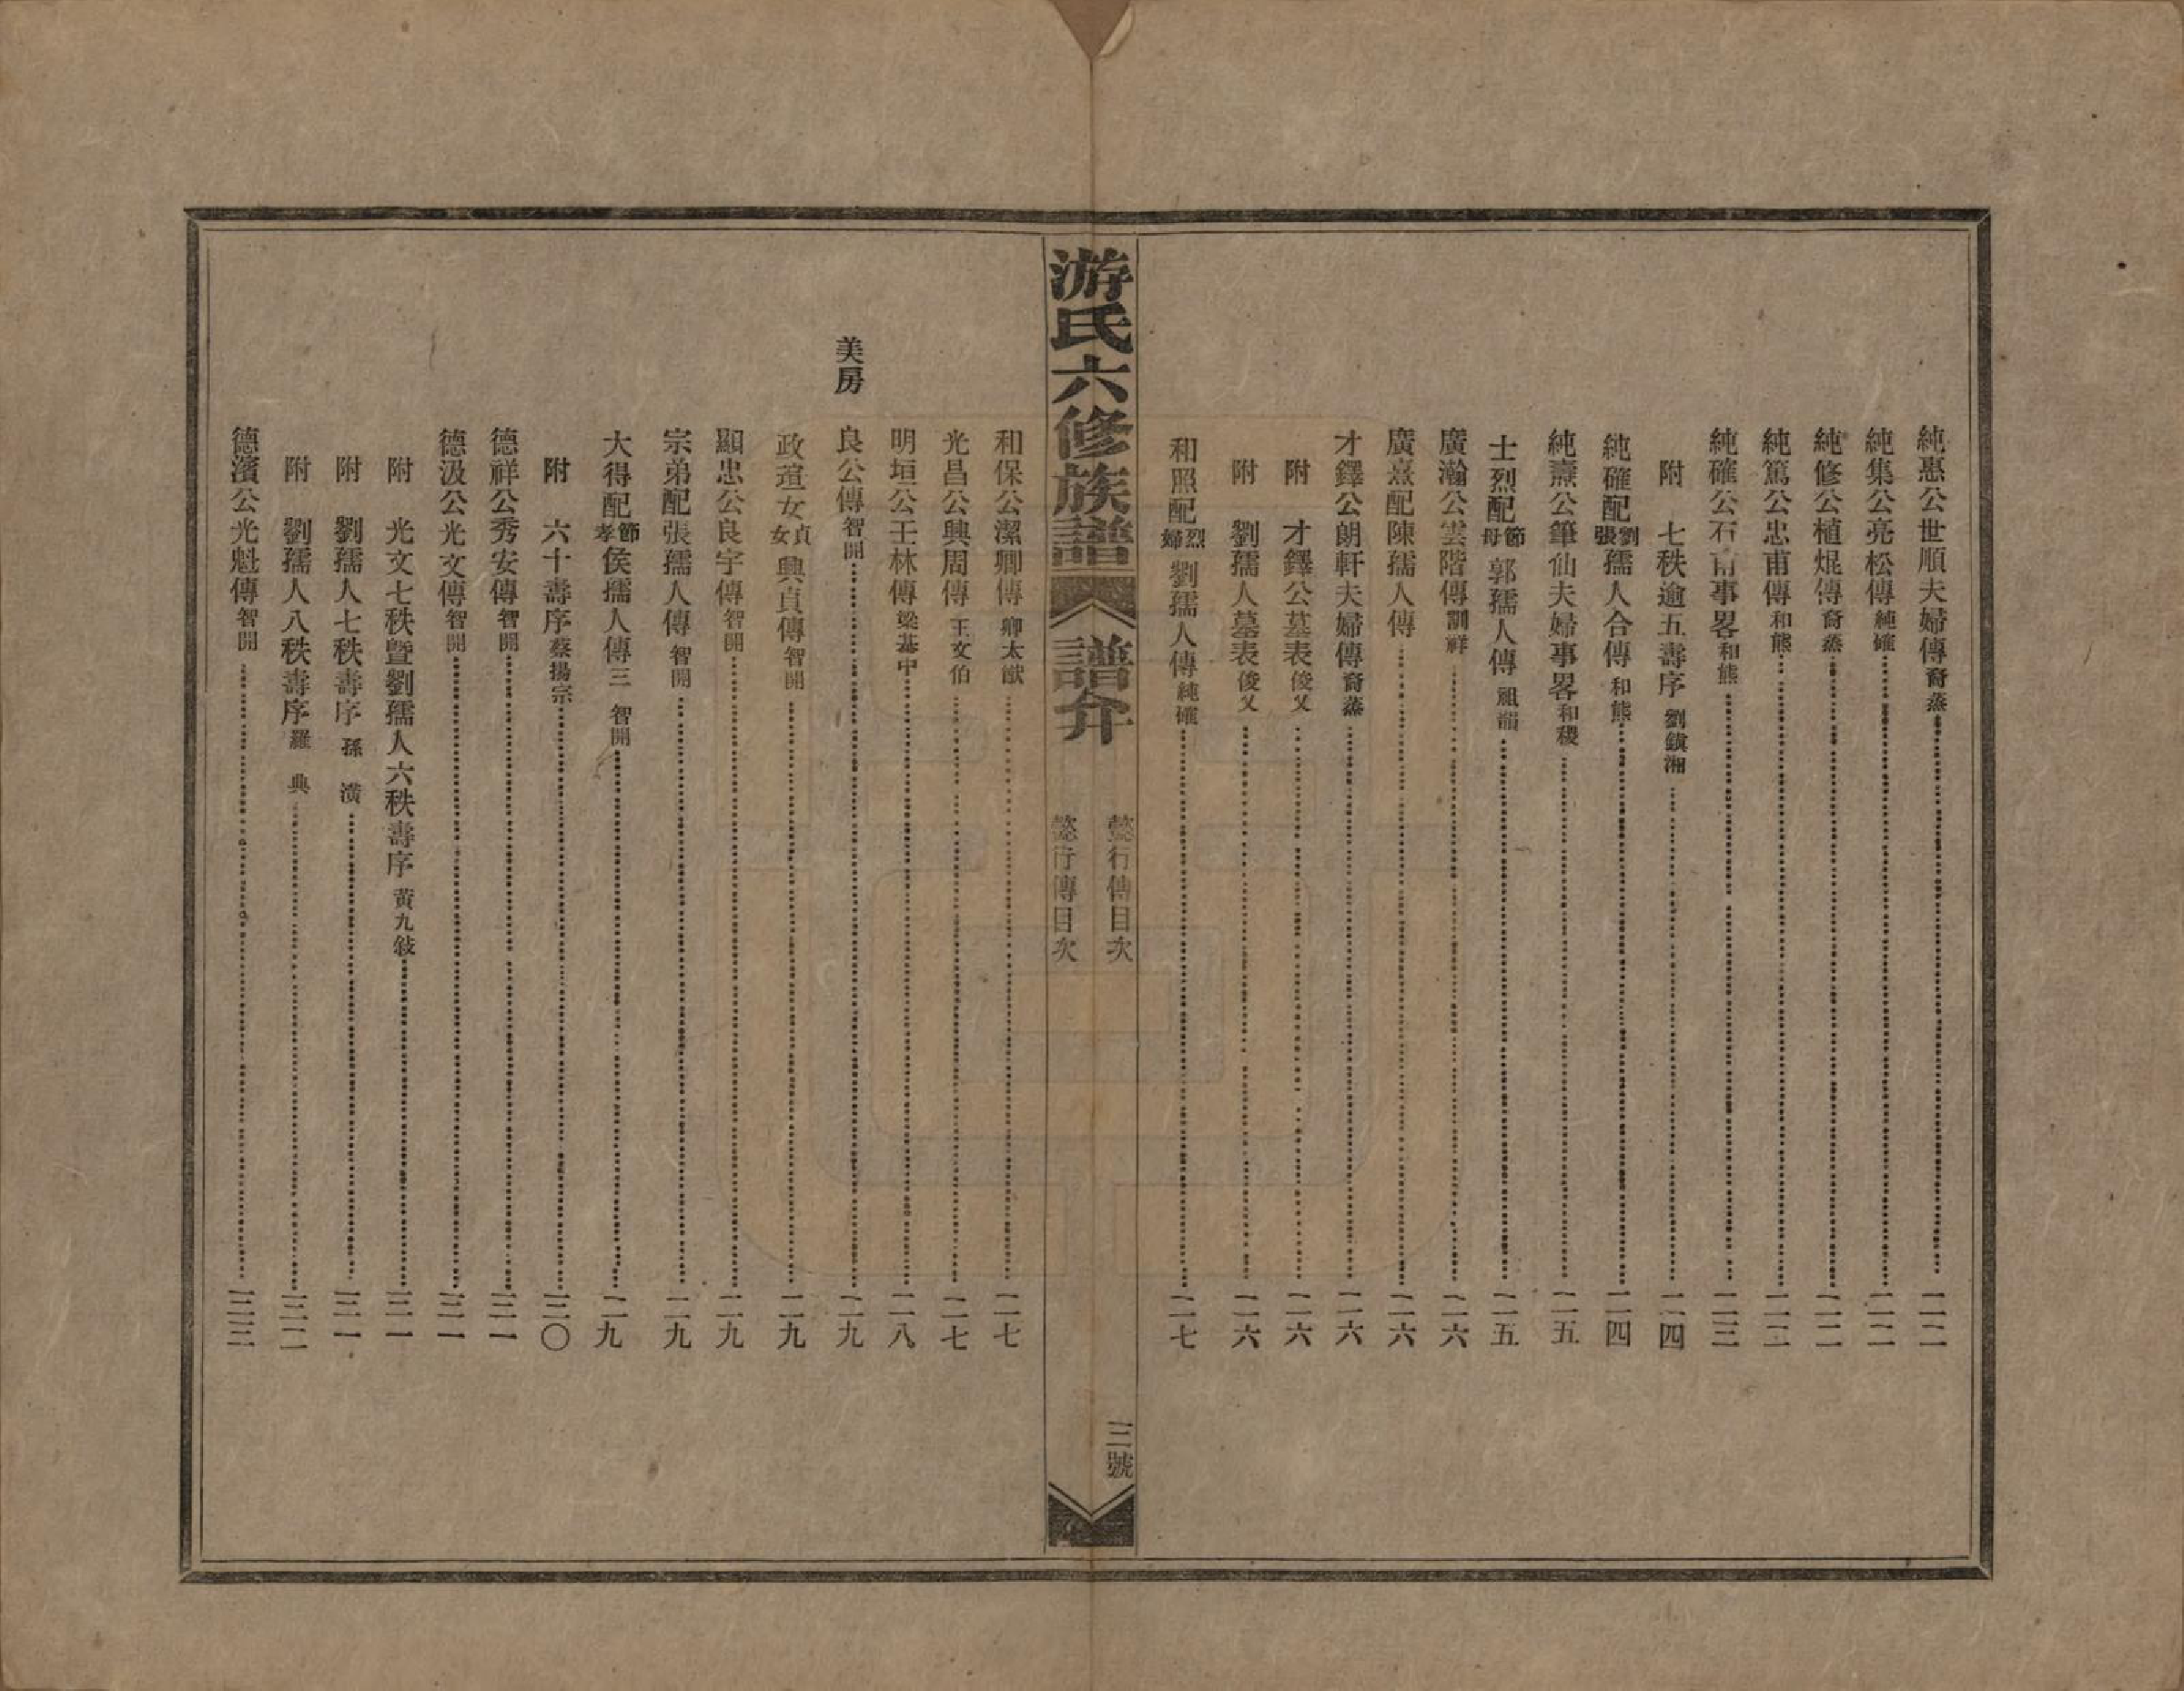 純惠公世順夫婦傳 裔蒸 二二
純集公亮松傳 純確 二二
純修公植焜傳 裔蒸 二二
純篤公忠甫傳 和熊 二二
純確公石甫事畧 和熊 二三
附 七秩逾五壽序 劉鎮湘 二四
純確配劉張孺人合傳 和熊 二四
純燾公筆仙夫婦事畧 和稷 二五
士烈配節母郭孺人傳 二五
廣瀚公雲階傳 訓祥 二六
廣熹配陳孺人傳 二六
才鐸公朗軒夫婦傳 裔蒸 二六
附 才鐸公墓表 俊乂 二六
附 劉孺人墓表 俊乂 二六
和照配烈婦劉孺人傳 純確 二七
游氏六修族譜 譜介
懿行傳目次
懿行傳目次
三號
和保公潔卿傳 卿太猷 二七
光昌公興周傳 王文伯 二七
明垣公王林傳 梁基中 二八
美房
良公傳 智開 二九
政瑄女貞女興貞傳 智開 二九
顯忠公良宇傳 智開 二九
宗弟配張孺人傳 智開 二九
大得配節孝侯孺人傳三 智開 二九
附 六十壽序 蔡揚宗 三〇
德祥公秀安傳 智開 三一
德汲公光文傳 智開 三一
附 光文七秩暨劉孺人六秩壽序 黃九敍 三一
附 劉孺人七秩壽序 孫 潢 三一
附 劉孺人八秩壽序 羅 典 三二
德濱公光魁傳 智開 三三